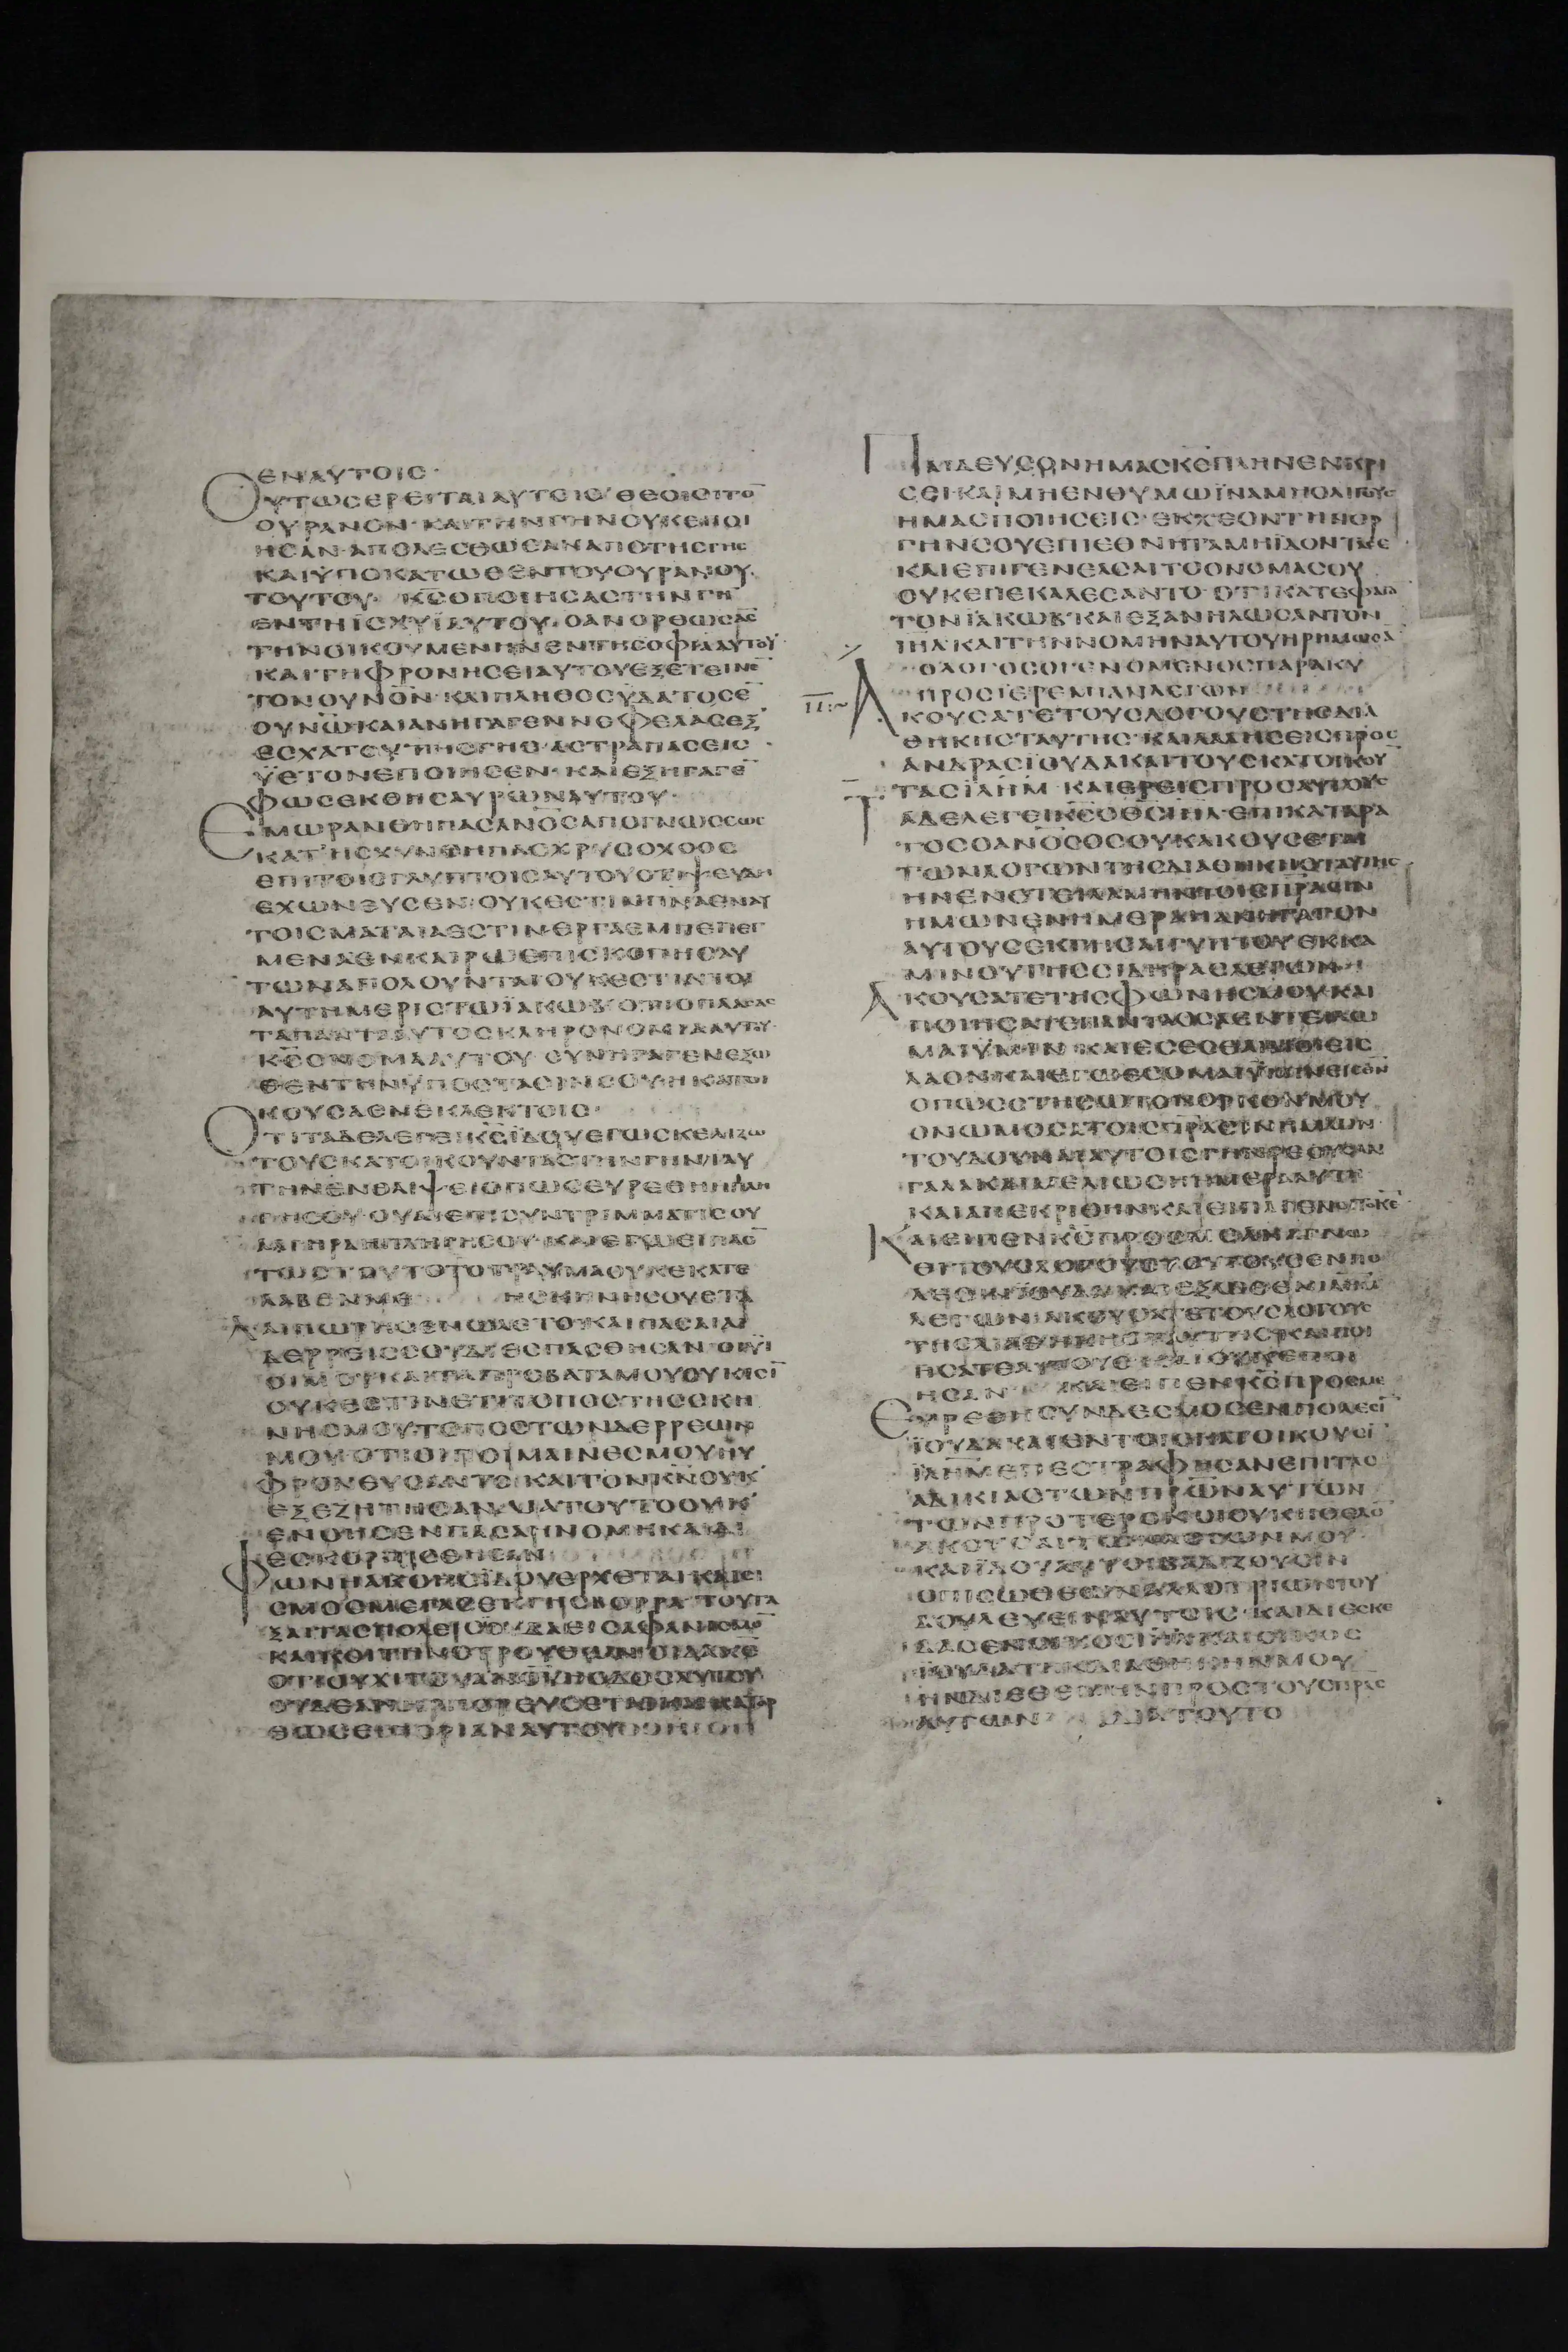 ΕΝΑΥΤΟΙΣ·
ΟΥΤΩΣΕΡΕΙΤΑΙΑΥΤΟΙΣ ΘΕΟΙΟΙΤΟ̅
ΟΥΡΑΝΟΝ ΚΑΙΤΗΝΓΗΝΟΥΚΕΠΟΙ
ΗΣΑΝ ΑΠΟΛΕΣΘΩΣΑΝΑΠΟΤΗΣΓΗΣ
ΚΑΙΫΠΟΚΑΤΩΘΕΝΤΟΥΟΥΡΑΝΟΥ
ΤΟΥΤΟΥ· Κ̅Σ̅ΟΠΟΙΗΣΑΣΤΗΝΓΗ̅
ΕΝΤΗΪΣΧΥΪΑΥΤΟΥ·ΟΑΝΟΡΘΩΣΑΣ
ΤΗΝΟΙΚΟΥΜΕΝΗΝΕΝΤΗΣΟΦΙΑΑΥΤΟΥ
ΚΑΙΤΗΦΡΟΝΗΣΕΙΑΥΤΟΥΕΞΕΤΕΙΝΕ̅
ΤΟΝΟΥΝΟΝ ΚΑΙΠΛΗΘΟΣΫΔΑΤΟΣΕ̅
ΟΥΝΩ ΚΑΙΑΝΗΓΑΓΕΝΝΕΦΕΛΑΣΕΞ
ΕΣΧΑΤΟΥΤΗΣΓΗΣ ΑΣΤΡΑΠΑΣΕΙΣ
ΫΕΤΟΝΕΠΟΙΗΣΕΝ·ΚΑΙΕΞΗΓΑΓΕ̅
ΦΩΣΕΚΘΗΣΑΥΡΩΝΑΥΤΟΥ·
ΕΜΩΡΑΝΘΗΠΑΣΑΝΟΣΑΠΟΓΝΩΣΕΩΣ
ΚΑΤΗΣΧΥΝΘΗΠΑΣΧΡΥΣΟΧΟΟΣ
ΕΠΙΤΟΙΣΓΛΥΠΤΟΙΣΑΥΤΟΥΟΤΙΨΕΥΔΗ
ΕΧΩΝΕΥΣΕΝ ΟΥΚΕΣΤΙΝΠΝΑΕΝΑΥ
ΤΟΙΣΜΑΤΑΙΑΕΣΤΙΝΕΡΓΑΕΜΠΕΠΕΓ
ΜΕΝΑΕΝΚΑΙΡΩΕΠΙΣΚΟΠΗΣΑΥ
ΤΩΝΑΠΟΛΟΥΝΤΑΙΟΥΚΕΣΤΙΝΤΟΙ
ΑΥΤΗΜΕΡΙΣΤΩΪΑΚΩΒ ΟΤΙΟΠΛΑΣΑΣ
ΤΑΠΑΝΤΑΑΥΤΟΣΚΛΗΡΟΝΟΜΙΑΑΥΤΟΥ
Κ̅Σ̅ΟΝΟΜΑΑΥΤΟΥ ΣΥΝΗΓΑΓΕΝΕΞΩ
ΘΕΝΤΗΝΫΠΟΣΤΑΣΙΝΣΟΥΗΚΑΤΟΙ
ΚΟΥΣΑΕΝΕΚΛΕΚΤΟΙΣ·
ΟΤΙΤΑΔΕΛΕΓΕΙΚ̅Σ̅ΪΔΟΥΕΓΩΣΚΕΛΙΖΩ
ΤΟΥΣΚΑΤΟΙΚΟΥΝΤΑΣΤΗΝΓΗΝΤΑΥ
ΤΗΝΕΝΘΛΙΨΕΙΟΠΩΣΕΥΡΕΘΗΗΠΛΗ
ΓΗΣΟΥ ΟΥΑΙΕΠΙΣΥΝΤΡΙΜΜΑΤΙΣΟΥ
ΑΛΓΗΡΑΗΠΛΗΓΗΣΟΥ ΚΑΙΕΓΩΕΙΠΑΟ̅
ΤΩΣΤΟΥΤΟΤΟΤΡΑΥΜΑΟΥΚΕΚΑΤΕ
ΛΑΒΕΝΜΕ ΗΣΚΗΝΗΣΟΥΕΤΑ
ΛΑΙΠΩΡΗΣΕΝΩΛΕΤΟΚΑΙΠΑΣΑΙΑΙ
ΔΕΡΡΕΙΣΣΟΥΔΙΕΣΠΑΣΘΗΣΑΝ ΟΙΫΙ
ΟΙΜΟΥΚΑΙΤΑΠΡΟΒΑΤΑΜΟΥΟΥΚΕΙΣΪ
ΟΥΚΕΣΤΙΝΕΤΙΤΟΠΟΣΤΗΣΣΚΗ
ΝΗΣΜΟΥΤΟΠΟΣΤΩΝΔΕΡΡΕΩΝ
ΜΟΥ ΟΤΙΟΙΠΟΙΜΑΙΝΕΣΜΟΥΗΫ
ΦΡΟΝΕΥΣΑΝΤΟ ΚΑΙΤΟΝΚ̅Ν̅ΟΥΚ
ΕΞΕΖΗΤΗΣΑΝ ΔΙΑΤΟΥΤΟΟΥΚ
ΕΝΟΗΣΕΝΠΑΣΑΗΝΟΜΗΚΑΙΔΙ
ΕΣΚΟΡΠΙΣΘΗΣΑΝ
ΦΩΝΗΑΚΟΗΣΪΔΟΥΕΡΧΕΤΑΙΚΑΙΣΕΙ
ΣΜΟΣΜΕΓΑΣΕΚΓΗΣΒΟΡΡΑ ΤΟΥΤΑ
ΞΑΙΤΑΣΠΟΛΕΙΣΙΟΥΔΑΕΙΣΑΦΑΝΙΣΜΟ̅
ΚΑΙΚΟΙΤΗΝΣΤΡΟΥΘΩΝ ΟΙΔΑΚΕ
ΟΤΙΟΥΧΙΤΟΥΑΝΟΥΗΟΔΟΣΑΥΤΟΥ
ΟΥΔΕΑΝΗΡΠΟΡΕΥΣΕΤΑΙΚΑΙΚΑΤΟΡ
ΘΩΣΕΙΠΟΡΙΑΝΑΥΤΟΥ
ΠΑΙΔΕΥΣΟΝΗΜΑΣΚ̅Ε̅ΠΛΗΝΕΝΚΡΙ
ΣΕΙ·ΚΑΙΜΗΕΝΘΥΜΩΪΝΑΜΗΟΛΙΓΟΥΣ
ΗΜΑΣΠΟΙΗΣΕΙΣ ΕΚΧΕΟΝΤΗΝΟΡ
ΓΗΝΣΟΥΕΠΙΕΘΝΗΤΑΜΗΪΔΟΝΤΑΣΕ
ΚΑΙΕΠΙΓΕΝΕΑΣΑΙΤΟΟΝΟΜΑΣΟΥ
ΟΥΚΕΠΕΚΑΛΕΣΑΝΤΟ ΟΤΙΚΑΤΕΦΑΓΟ̅
ΤΟΝΪΑΚΩΒ ΚΑΙΕΞΑΝΗΛΩΣΑΝΤΟΝ
Ι̅Η̅Λ̅ΚΑΙΤΗΝΝΟΜΗΝΑΥΤΟΥΗΡΗΜΩΣΑ̅
ΟΛΟΓΟΣΟΓΕΝΟΜΕΝΟΣΠΑΡΑΚΥ
ΠΡΟΣΪΕΡΕΜΙΑΝΛΕΓΩΝ
ΑΚΟΥΣΑΤΕΤΟΥΣΛΟΓΟΥΣΤΗΣΔΙΑ
ΘΗΚΗΣΤΑΥΤΗΣ ΚΑΙΛΑΛΗΣΕΙΣΠΡΟΣ
ΑΝΔΡΑΣΪΟΥΔΑΚΑΙΤΟΥΣΚΑΤΟΙΚΟΥ̅
ΤΑΣΪΛΗΜ ΚΑΙΕΡΕΙΣΠΡΟΣΑΥΤΟΥΣ
ΤΑΔΕΛΕΓΕΙΚ̅Σ̅ΟΘΣΙΗΛ·ΕΠΙΚΑΤΑΡΑ
ΤΟΣΟΑΝΟΣΟΣΟΥΚΑΚΟΥΣΕΤΑΙ
ΤΩΝΛΟΓΩΝΤΗΣΔΙΑΘΗΚΗΣΤΑΥΤΗΣ
ΗΝΕΝΕΤΕΙΛΑΜΗΝΤΟΙΣΠΡΑΣΙΝ
ΗΜΩΝΕΝΗΜΕΡΑΗΑΝΗΓΑΓΟΝ
ΑΥΤΟΥΣΕΚΓΗΣΑΙΓΥΠΤΟΥΕΚΚΑ
ΜΙΝΟΥΤΗΣΣΙΔΗΡΑΣΛΕΓΩΝ
ΑΚΟΥΣΑΤΕΤΗΣΦΩΝΗΣΜΟΥΚΑΙ
ΠΟΙΗΣΑΤΕΠΑΝΤΑΟΣΑΕΝΤΕΛΛΩ
ΜΑΙΫΜΙΝ ΚΑΙΕΣΕΣΘΑΙΜΟΙΕΙΣ
ΛΑΟΝΚΑΙΕΓΩΕΣΟΜΑΙΫΜΙΝΕΙΣΘΝ
ΟΠΩΣΣΤΗΣΩΤΟΝΟΡΚΟΝΜΟΥ
ΟΝΩΜΟΣΑΤΟΙΣΠΡΑΣΙΝΗΜΩΝ
ΤΟΥΔΟΥΝΑΙΑΥΤΟΙΣΓΗΝΡΕΟΥΣΑΝ
ΓΑΛΑΚΑΙΜΕΛΙΩΣΗΗΜΕΡΑΑΥΤΗ
ΚΑΙΑΠΕΚΡΙΘΗΝΚΑΙΕΙΠΑΓΕΝΟΙΤΟΚΕ
ΚΑΙΕΙΠΕΝΚ̅Σ̅ΠΡΟΣΜΕ ΑΝΑΓΝΩ
ΘΙΤΟΥΣΛΟΓΟΥΣΤΟΥΤΟΥΣΕΝΠΟ
ΛΕΣΙΝΪΟΥΔΑΚΑΙΕΞΩΘΕΝΙΛΗΜ
ΛΕΓΩΝ ΑΚΟΥΣΑΤΕΤΟΥΣΛΟΓΟΥΣ
ΤΗΣΔΙΑΘΗΚΗΣΤΑΥΤΗΣΚΑΙΠΟΙ
ΗΣΑΤΕΑΥΤΟΥΣ ΚΑΙΟΥΚΕΠΟΙ
ΗΣΑΝ ΚΑΙΕΙΠΕΝΚ̅Σ̅ΠΡΟΣΜΕ
ΕΥΡΕΘΗΣΥΝΔΕΣΜΟΣΕΝΠΟΛΕΣΪ
ΪΟΥΔΑΚΑΙΕΝΤΟΙΣΚΑΤΟΙΚΟΥΣΪ
ΪΛΗΜΕΠΕΣΤΡΑΦΗΣΑΝΕΠΙΤΑΣ
ΑΔΙΚΙΑΣΤΩΝΠΡΩΝΑΥΤΩΝ
ΤΩΝΠΡΟΤΕΡΟΝΟΙΟΥΚΗΘΕΛΟ̅
ΑΚΟΥΣΑΙΤΩΝΛΟΓΩΝΜΟΥ
ΚΑΙΪΔΟΥΑΥΤΟΙΒΑΔΙΖΟΥΣΙΝ
ΟΠΙΣΩΘΕΩΝΑΛΛΟΤΡΙΩΝΤΟΥ
ΔΟΥΛΕΥΕΙΝΑΥΤΟΙΣ·ΚΑΙΔΙΕΣΚΕ
ΔΑΣΕΝΟΙΚΟΣΙΗΛΚΑΙΟΙΚΟΣ
ΪΟΥΔΑΤΗΝΔΙΑΘΗΚΗΝΜΟΥ
ΗΝΔΙΕΘΕΜΗΝΠΡΟΣΤΟΥΣΠΡΑΣ
ΑΥΤΩΝ ΔΙΑΤΟΥΤΟ